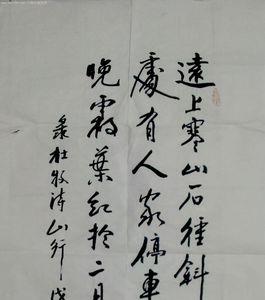 遠上寒山石徑斜
處有人家停車
晚霜葉紅於二月
彔杜牧詩山行